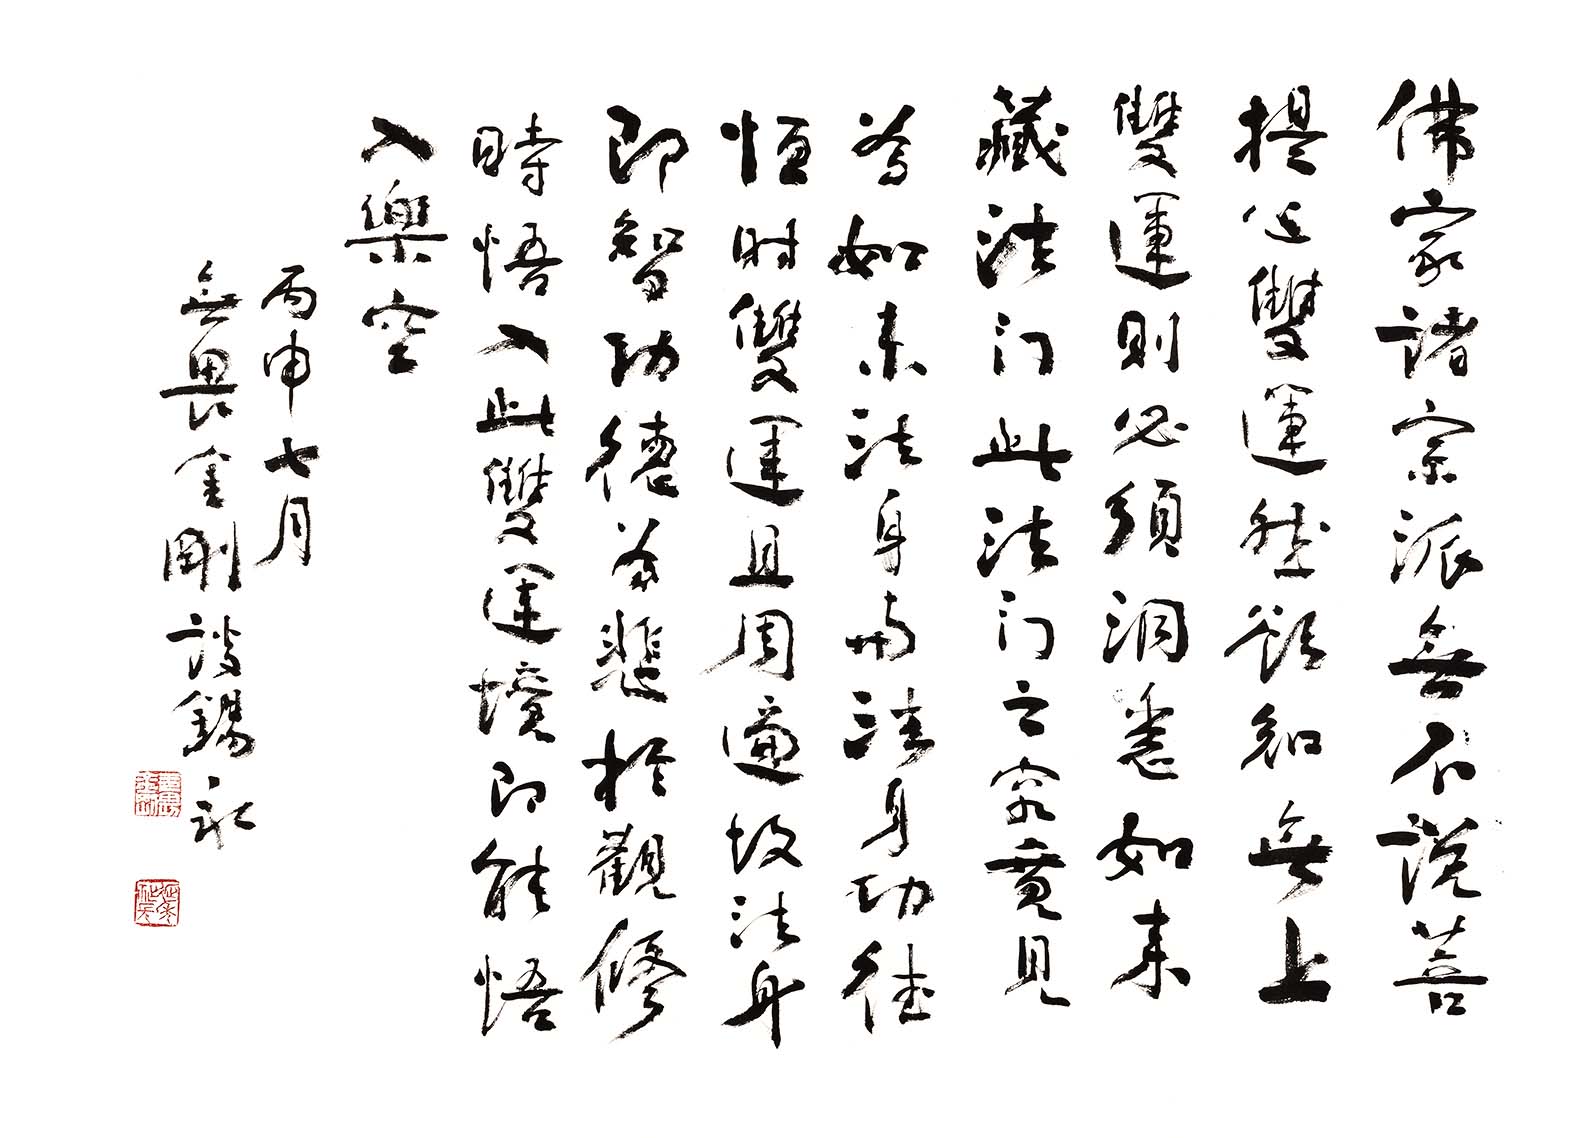 佛家諸宗派無不說菩
提心雙運然欲知無上
雙運則必須洞悉如來
藏法门此法门之究竟見
為如来法身與法身功德
恒时雙運且周遍故法身
即智功德為悲於觀修
時悟入此雙運境即能悟
入樂空
丙申七月
無畏金剛談錫永